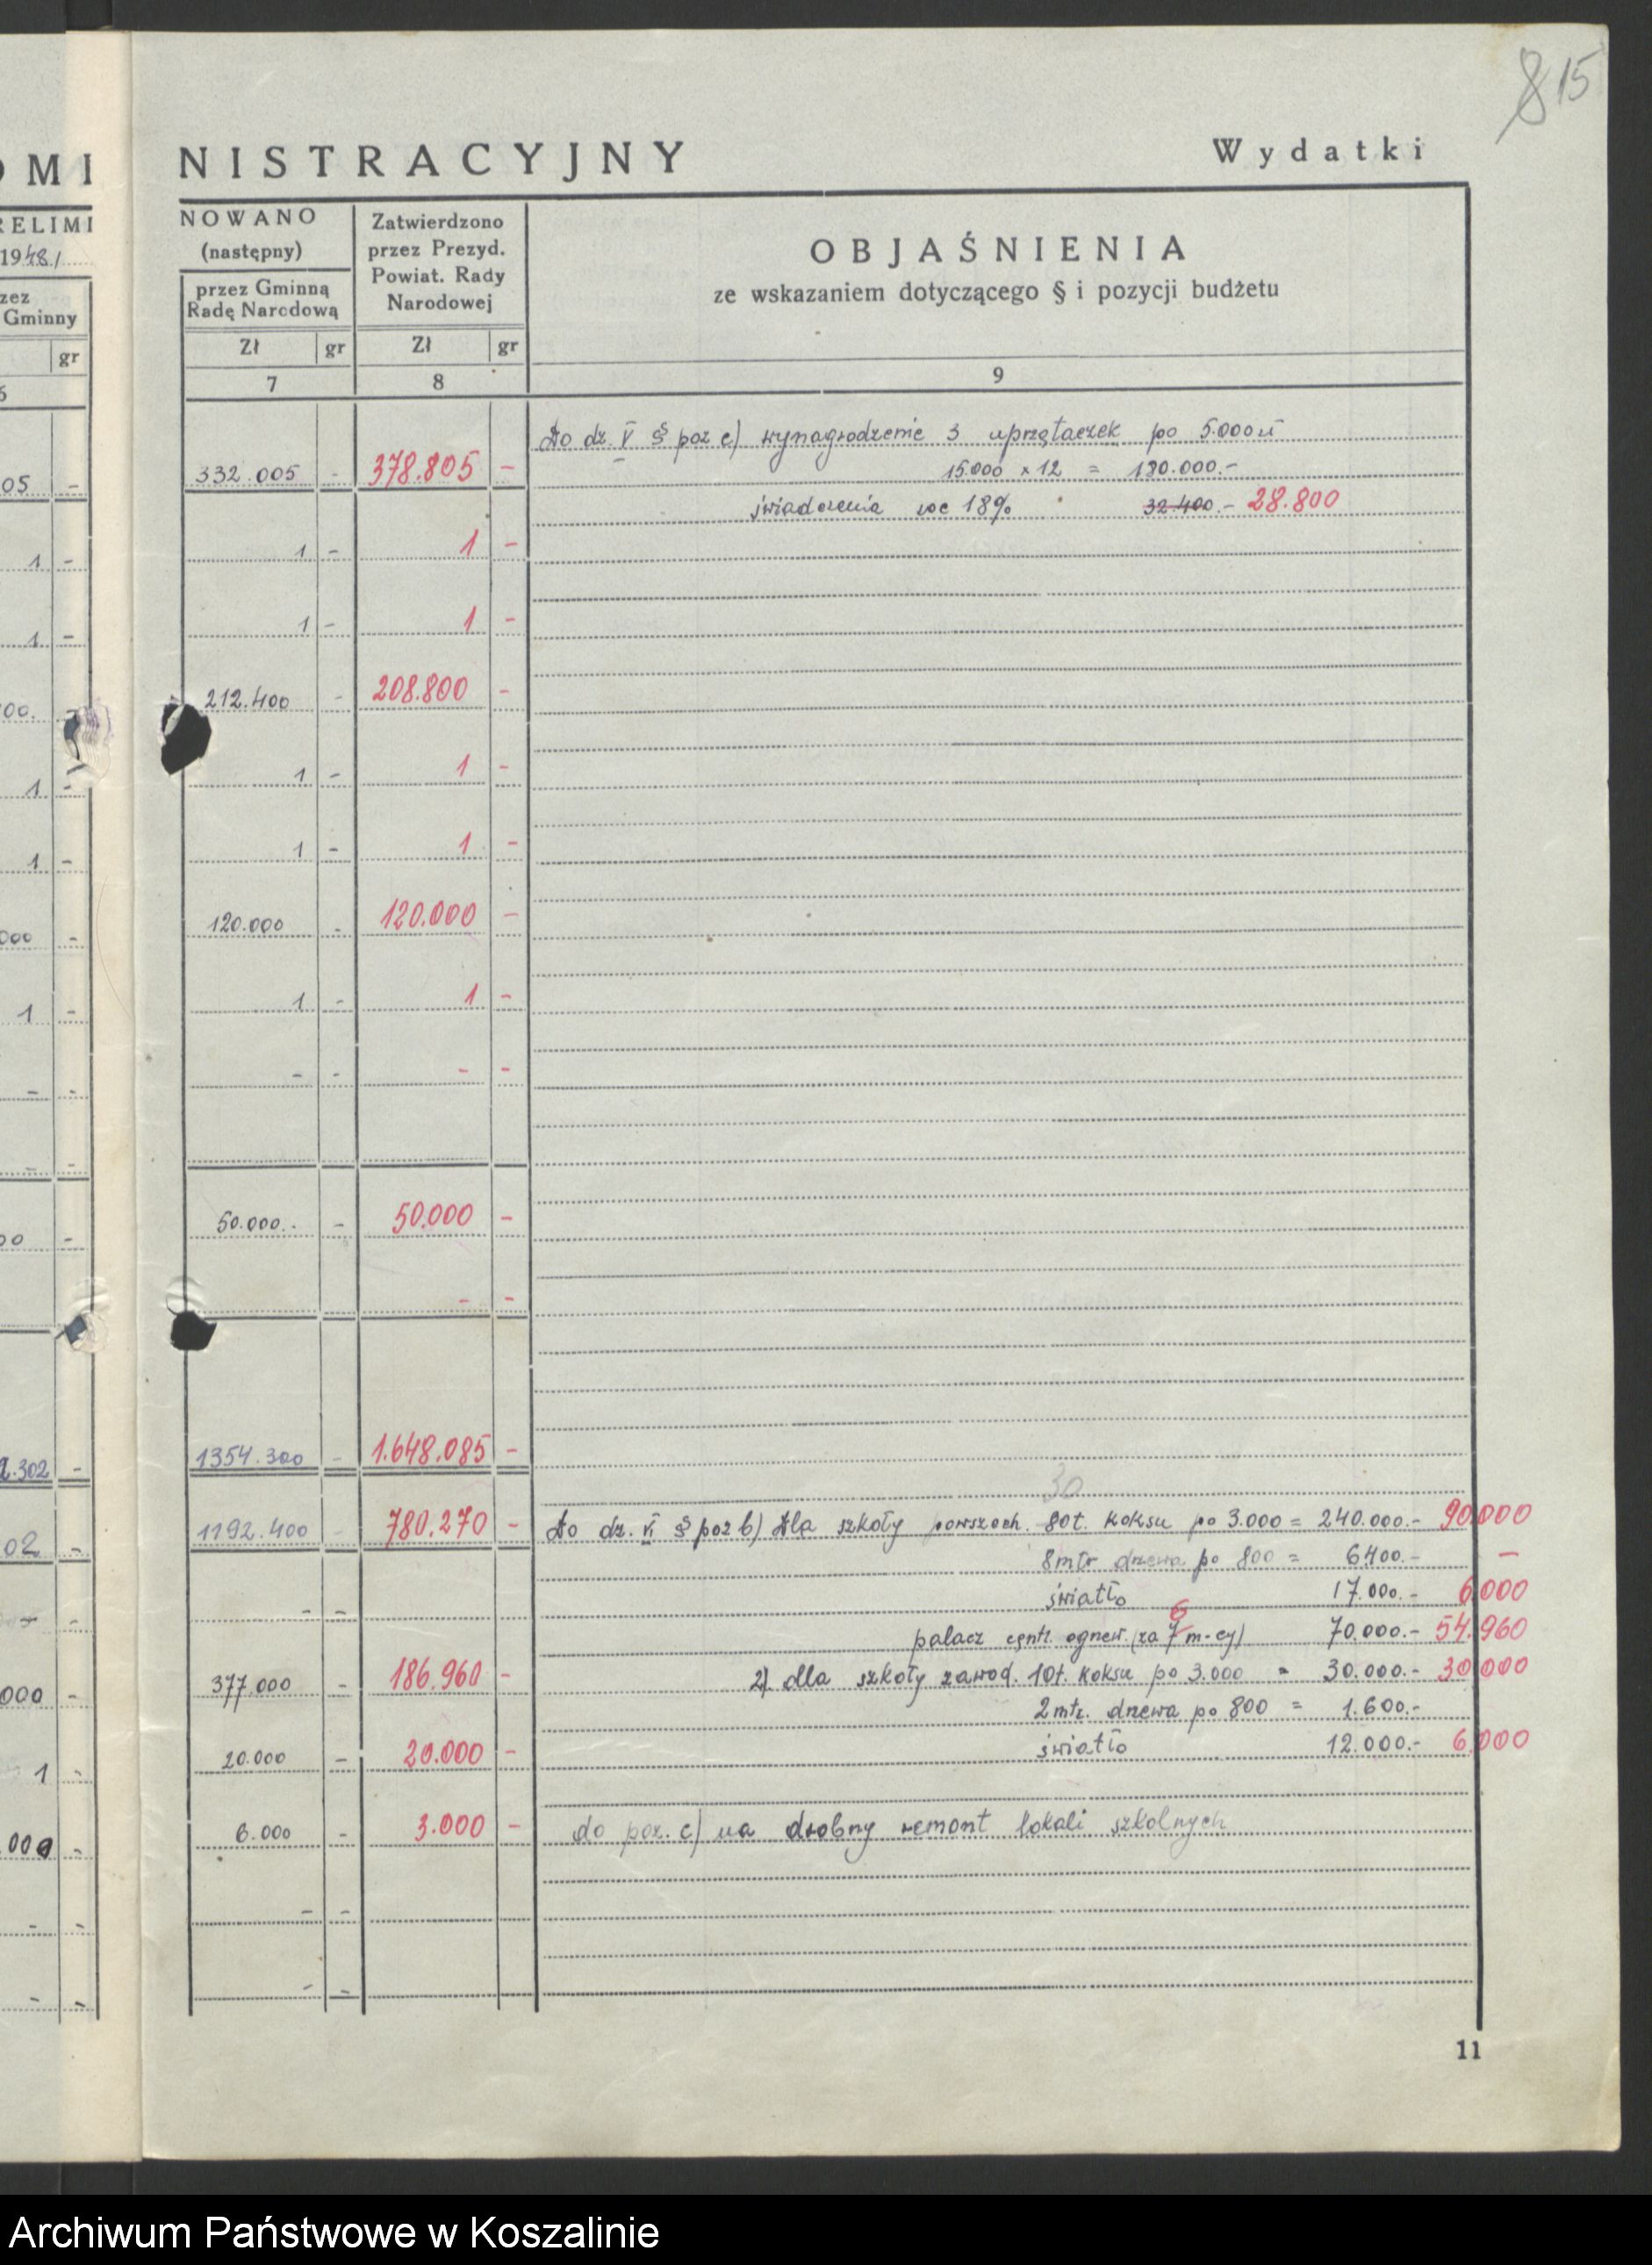 815
OMI
NISTRACYJNY
Wydatki
RELIMI
1948/
zez
Gminny
gr
6
NOWANO
(następny)
przez Gminną
Radę Narodową
Zł gr
7
Zatwierdzono
przez Prezyd.
Powiat. Rady
Narodowej
Zł gr
8
OBJAŚNIENIA
ze wskazaniem dotyczącego § i pozycji budżetu
9
Do dz. V § poz c) wynagrodzenie 3 uprzątaczek po 5.000 zł
05 - 332.005 - 378.805 - 15.000 x 12 = 180.000.-
świadczenia soc 18% 32.400.- 28.800
1 - 1 - 1 -
1 - 1 - 1 -
00. - 212.400 - 208.800 -
1 - 1 - 1 -
1 - 1 - 1 -
000 - 120.000 - 120.000 -
1 - 1 - 1 -
- - - - - -
- -
00 - 50.000.- - 50.000 -
- -
2.302 - 1354.300 - 1.648.085 -
30
02 - 1192.400 - 780.270 - Do dz. VI § poz b) dla szkoły powszech. 80t. koksu po 3.000 = 240.000.- 90.000
8 mtr drzewa po 800 = 6400.- -
- - - - światło 17.000.- 6.000
6
palacz centr. ogrzew. (za 7 m-cy) 70.000.- 54.960
000 - 377.000 - 186.960 - 2) dla szkoły zawod. 10t. koksu po 3.000 = 30.000.- 30.000
2 mtr. drzewa po 800 = 1.600.-
1 - 20.000 - 20.000 - światło 12.000.- 6.000
000 - 6.000 - 3.000 - do poz. c) na drobny remont lokali szkolnych
- - - -
- - - -
11
Archiwum Państwowe w Koszalinie